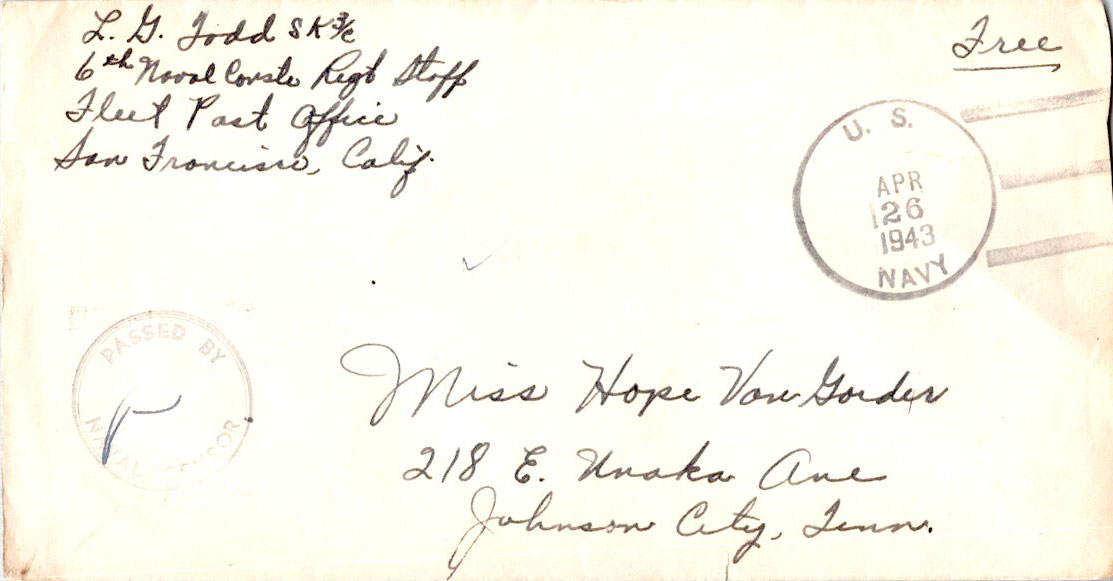 L. G. Todd SK 3/c
6th Naval Constr Regt Staff
Fleet Post Office
San Francisco, Calif.
Free
U. S.
APR
26
1943
NAVY
PASSED BY
NAVAL CENSOR
Miss Hope Van Gorder
218 E. Unaka Ave
Johnson City, Tenn.